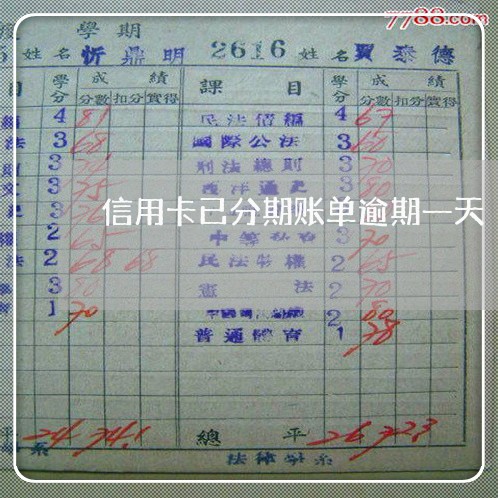 7788.com
學期
姓名 忻鼎明 2616 姓名 賈泰德
目 學分 成績 課目 學分 成績
分數 扣分 實得 分數 扣分 實得
4 81 民法債編 4 67
法 3 68 國際公法 3 60
3 刑法總則 3 70
3 75 西洋通史 3 80
信用卡已分期账单逾期一天
2 3 70
法 2 68 68 民法物權 2 65
3 80 憲法 2 70
1 70 2 80
普通體育 1 78
平 24 74.1 總平 26 72.3
系 法律學系